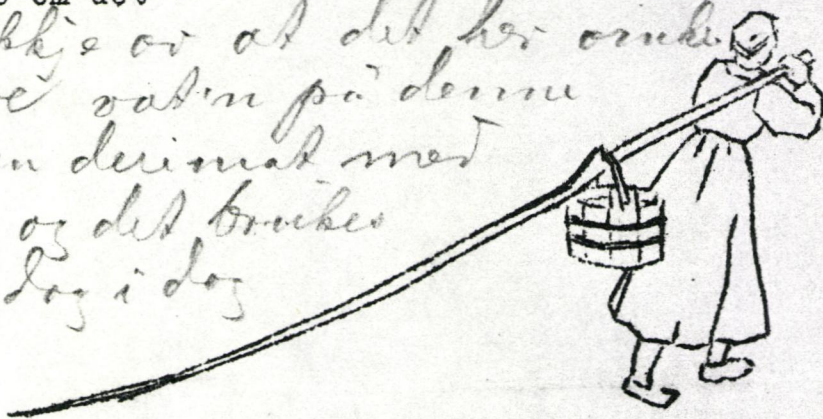 e om det
kkje or at det her
vatn på denne
n derimot med
og det brukes
dag i dag